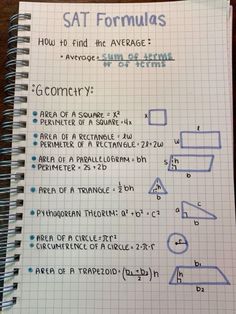 SAT Formulas
HOW TO find the AVERAGE:
• Average = sum of terms
# of terms
:Geometry:
• AREA OF A SQUARE = x²
• PERIMETER OF A SQUARE = 4x
x
• AREA OF A RECTANGLE = lw
• PERIMETER OF A RECTANGLE = 2l + 2w
l
w
• AREA OF A PARALLELOGRAM = bh
• PERIMETER = 2s + 2b
s
h
b
• AREA OF A TRIANGLE = ½ bh
h
b
• Pythagorean Theorem: a² + b² = c²
a
c
b
• AREA OF A CIRCLE = πr²
• CIRCUMFRENCE OF A CIRCLE = 2·π·r
r
• AREA OF A TRAPEZOID = (b₁ + b₂ / 2) h
b₁
h
b₂